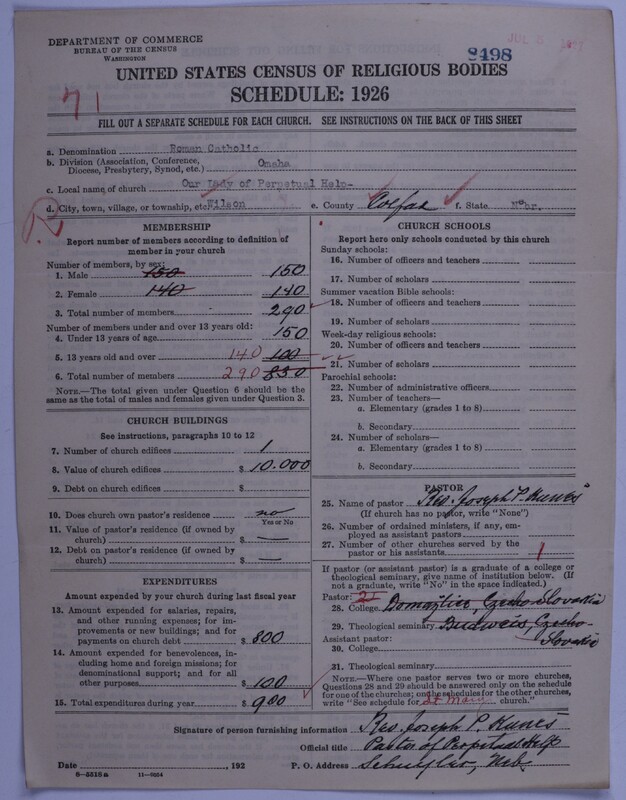 DEPARTMENT OF COMMERCE
BUREAU OF THE CENSUS
WASHINGTON
8498
71
UNITED STATES CENSUS OF RELIGIOUS BODIES
SCHEDULE: 1926
FILL OUT A SEPARATE SCHEDULE FOR EACH CHURCH. SEE INSTRUCTIONS ON THE BACK OF THIS SHEET
a. Denomination Roman Catholic
b. Division (Association, Conference, Diocese, Presbytery, Synod, etc.) Omaha
c. Local name of church Our Lady of Perpetual Help-
d. City, town, village, or township, etc. Wilson e. County Colfax f. State Nebr.
R
MEMBERSHIP
Report number of members according to definition of
member in your church
Number of members, by sex:
1. Male 150 150
2. Female 140 140
3. Total number of members 290
Number of members under and over 13 years old:
4. Under 13 years of age 150
5. 13 years old and over 140 100
6. Total number of members 290
NOTE.—The total given under Question 6 should be
same as the total of males and females given under Question 3.
CHURCH BUILDINGS
See instructions, paragraphs 10 to 12
7. Number of church edifices 1
8. Value of church edifices $ 10.000
9. Debt on church edifices $
10. Does church own pastor's residence no
Yes or No
11. Value of pastor's residence (if owned by
church) $ —
12. Debt on pastor's residence (if owned by
church) $ —
EXPENDITURES
Amount expended by your church during last fiscal year
13. Amount expended for salaries, repairs,
and other running expenses; for im-
provements or new buildings; and for
payments on church debt $ 800
14. Amount expended for benevolences, in-
cluding home and foreign missions; for
denominational support; and for all
other purposes $ 100
15. Total expenditures during year $ 900
CHURCH SCHOOLS
Report here only schools conducted by this church
Sunday schools:
16. Number of officers and teachers
17. Number of scholars
Summer vacation Bible schools:
18. Number of officers and teachers
19. Number of scholars
Week-day religious schools:
20. Number of officers and teachers
21. Number of scholars
Parochial schools:
22. Number of administrative officers
23. Number of teachers—
a. Elementary (grades 1 to 8)
b. Secondary
24. Number of scholars—
a. Elementary (grades 1 to 8)
b. Secondary
PASTOR
25. Name of pastor Rev. Joseph P. Kunes
(If church has no pastor, write "None")
26. Number of ordained ministers, if any, em-
ployed as assistant pastors
27. Number of other churches served by the
pastor or his assistants 1
If pastor (or assistant pastor) is a graduate of a college or
theological seminary, give name of institution below. (If
not a graduate, write "No" in the space indicated.)
Pastor:
28. College Domazlice, Czecho-Slovakia
29. Theological seminary Budweis, Czecho-
Slovakia
Assistant pastor:
30. College
31. Theological seminary
NOTE.—Where one pastor serves two or more churches,
Questions 28 and 29 should be answered only on the schedule
for one of the churches; on the schedules for the other churches,
write "See schedule for St Mary church."
Signature of person furnishing information Rev. Joseph P. Kunes
Official title Pastor of Perpetual Help
Date , 192 P. O. Address Neb.
6-5516a 11-8664